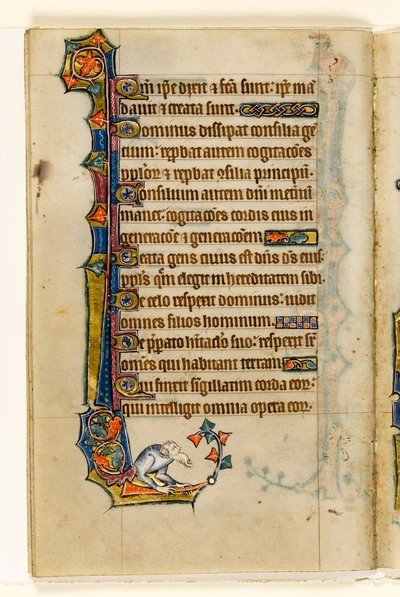 Qm̄ ip̄e dixit ⁊ fc̄a sunt: ip̄e mā
dauit ⁊ creata sunt.
Dominus dissipat consilia gē
tium: rep̄bat autem cogitacōes
pp̄loꝝ ⁊ rep̄bat ꝯsilia principū.
Consilium autem dn̄i in et̄nū
manet: cogitacōes cordis eius in
generacōe ⁊ generacōem.
Beata gens cuius est dn̄s d̄s eius
pp̄s quē elegit in hereditatem sibi.
De celo respexit dominus: uidit
omnes filios hominum.
De p̄pato hītac̄lo suo: respexit sr̄
om̄es qui habitant terram.
Qui finxit sigillatim corda eoꝝ:
qui intelligit omnia opera eoꝝ.